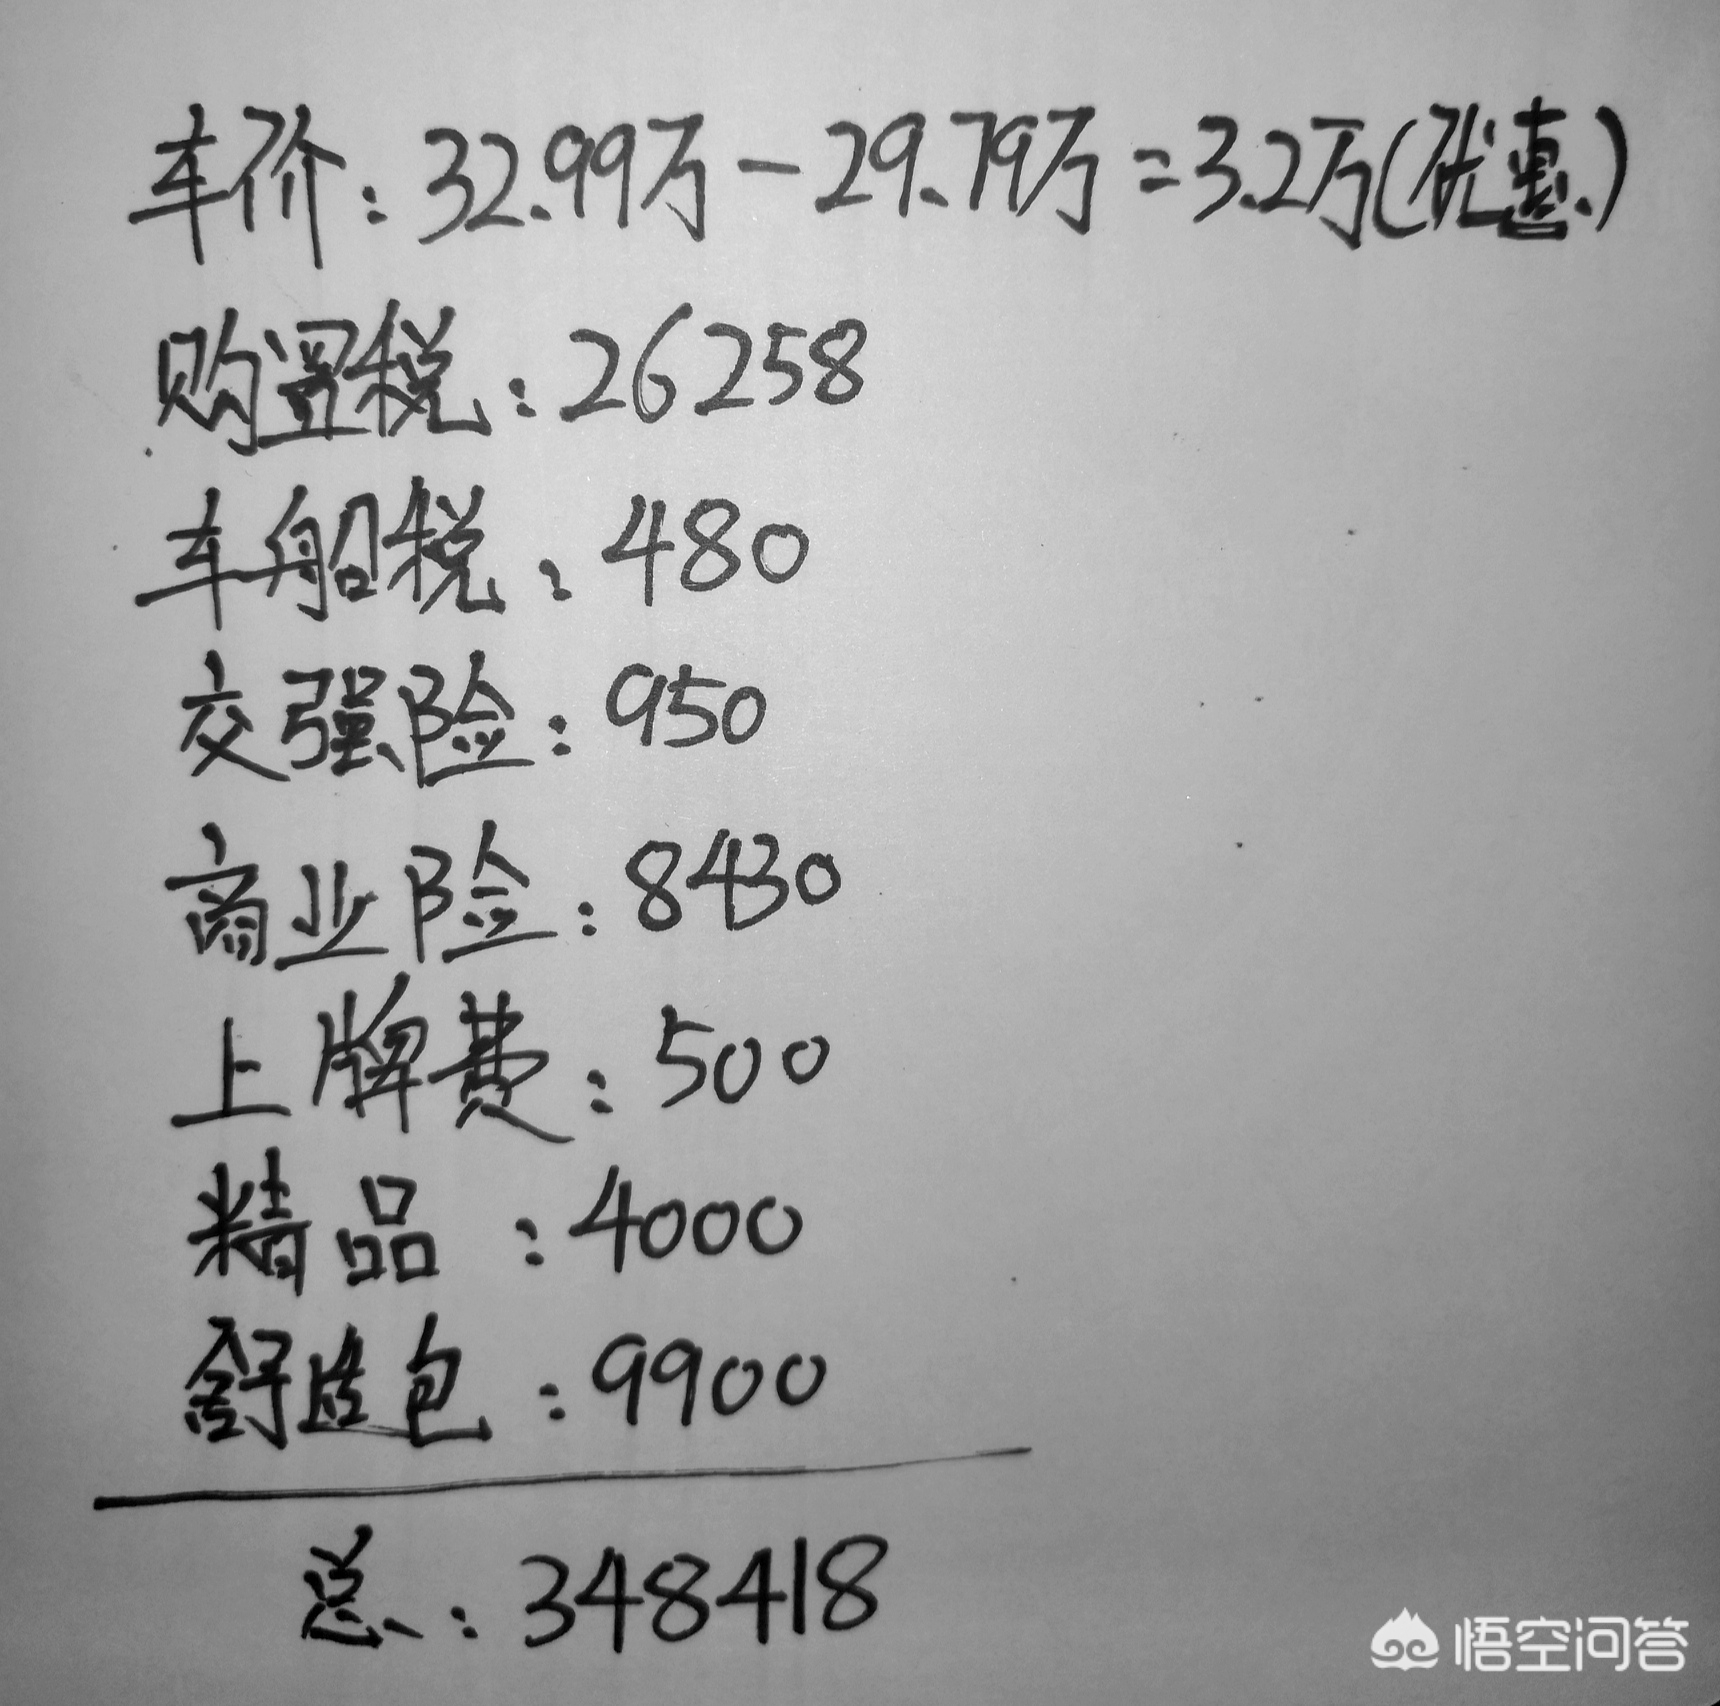 车价：32.99万－29.79万＝3.2万(优惠)
购置税：26258
车船税：480
交强险：950
商业险：8430
上牌费：500
精品：4000
舒适包：9900
总：348418
悟空问答